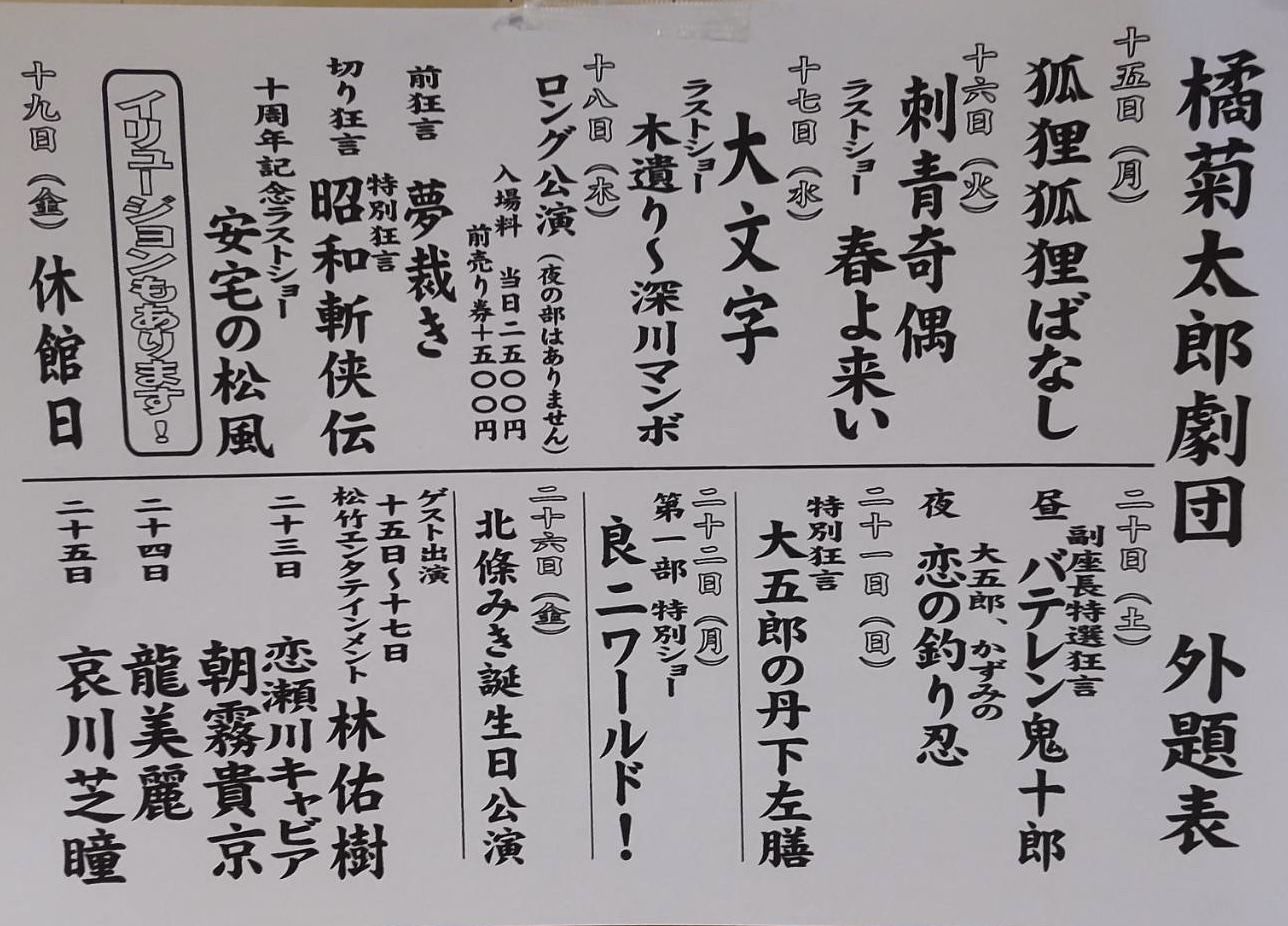 橘菊太郎劇団 外題表
十五日（月）
狐狸狐狸ばなし
十六日（火）
刺青奇偶
ラストショー 春よ来い
十七日（水）
大文字
ラストショー
木遣り～深川マンボ
十八日（木）
ロング公演（夜の部はありません）
入場料 当日二五〇〇円
前売り券十五〇〇円
前狂言 夢裁き
切り狂言 特別狂言 昭和斬侠伝
十周年記念ラストショー
安宅の松風
イリュージョンもあります！
十九日（金）休館日
二十日（土）
副座長特選狂言
昼 バテレン鬼十郎
大五郎、かずみの
夜 恋の釣り忍
二十一日（日）
特別狂言
大五郎の丹下左膳
二十二日（月）
第一部 特別ショー
良二ワールド！
二十六日（金）
北條みき誕生日公演
ゲスト出演
十五日～十七日
松竹エンタテインメント 林佑樹
二十三日 恋瀬川キャビア
朝霧貴京
二十四日 龍美麗
二十五日 哀川芝瞳